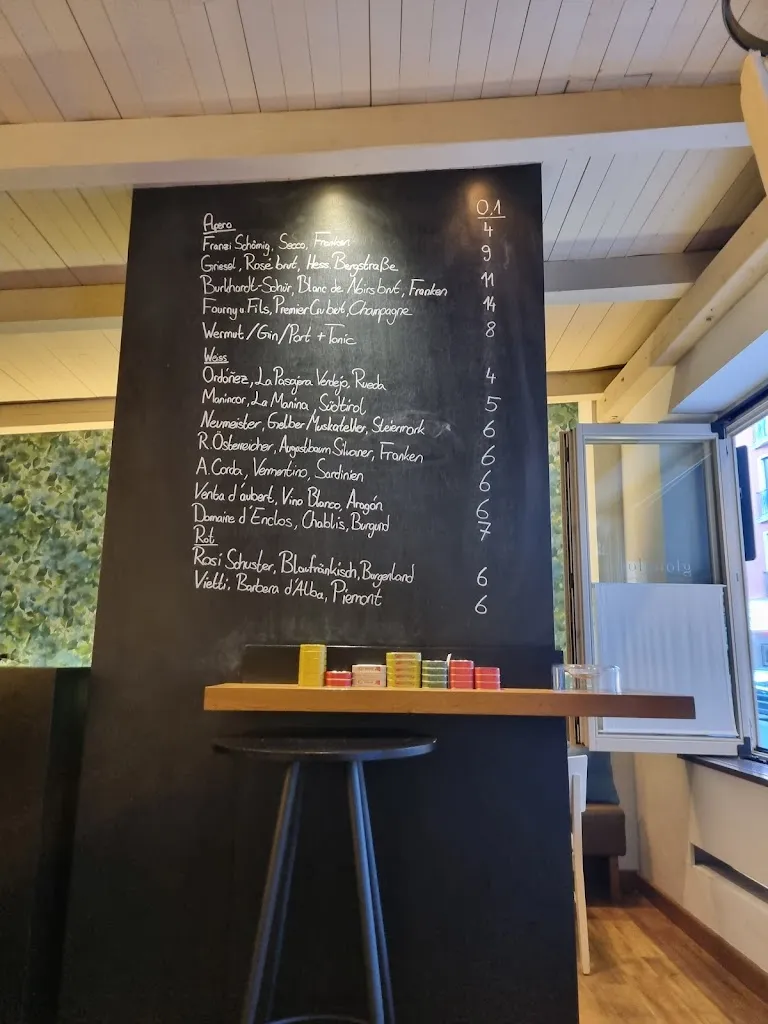 Apero 0,1
Franzi Schömig, Secco, Franken 4
Griesel, Rosé brut, Hess. Bergstraße 9
Burkhardt-Schür, Blanc de Noirs brut, Franken 11
Fourny u. Fils, Premier Cru brut, Champagne 14
Wermut/Gin/Port + Tonic 8
Weiss
Ordóñez, La Pasajera Verdejo, Rueda 4
Manincor, La Manina, Südtirol 5
Neumeister, Gelber Muskateller, Steiermark 6
R. Österreicher, Augustbaum Silvaner, Franken 6
A. Corda, Vermentino, Sardinien 6
Venta d'aubert, Vino Blanco, Aragón 6
Domaine d'Enclos, Chablis, Burgund 7
Rot
Rosi Schuster, Blaufränkisch, Burgenland 6
Vietti, Barbera d'Alba, Piemont 6